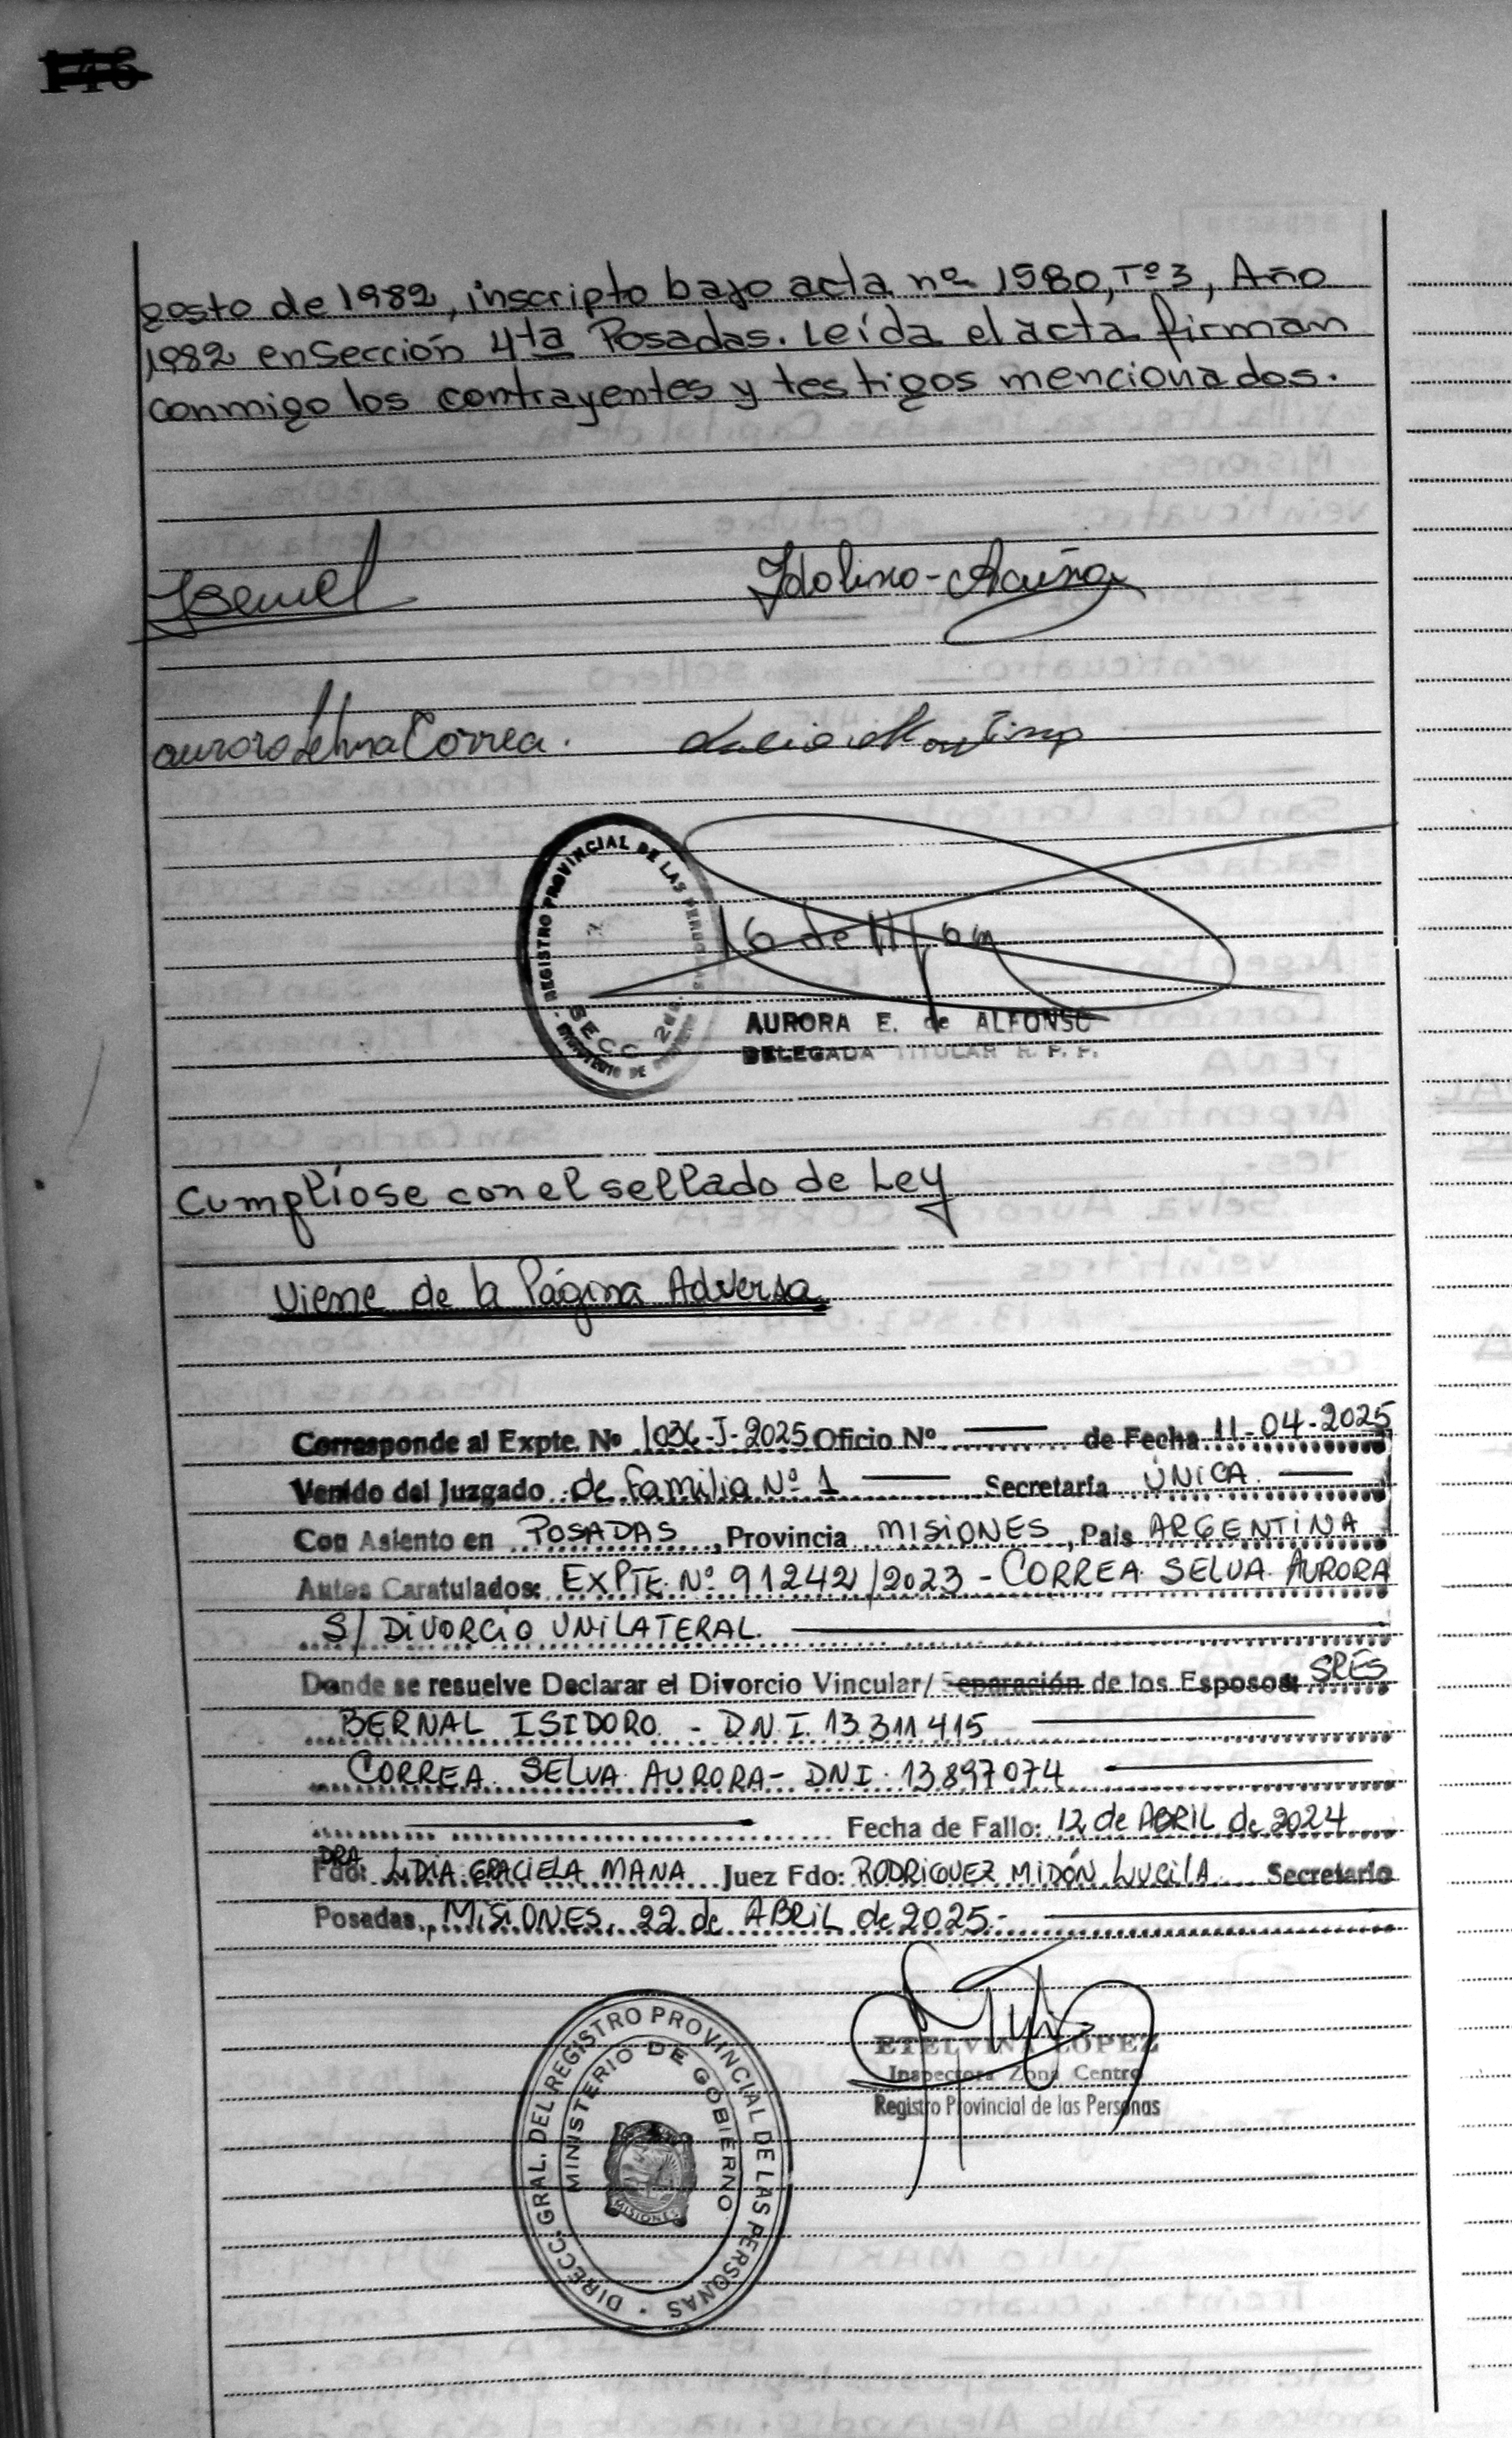 gosto de 1982, inscripto bajo acta nº 1580, Tº 3, Año
1982 en Sección 4ta Posadas. Leída el acta firman
conmigo los contrayentes y testigos mencionados.
Idolino - Acuña
aurora Selva Correa.
REGISTRO PROVINCIAL DE LAS PERSONAS
SECC 2da.
MINISTERIO DE GOBIERNO
AURORA E. de ALFONSO
DELEGADA TITULAR R. P. P.
Cumplíose con el sellado de Ley
Viene de la Página Adversa
Corresponde al Expte. Nº 1036-J-2025 Oficio Nº —— de Fecha 11-04-2025
Venido del Juzgado de Familia Nº 1 —— Secretaría ÚNICA ——
Con Asiento en POSADAS, Provincia MISIONES, País ARGENTINA
Autos Caratulados: EXPTE Nº 91242/2023 - CORREA SELVA AURORA
S/ DIVORCIO UNILATERAL. ——
Donde se resuelve Declarar el Divorcio Vincular/ Separación de los Esposos: SRES
BERNAL ISIDORO - DNI. 13311415 ——
CORREA SELVA AURORA - DNI. 13897074 ——
—— Fecha de Fallo: 12 de ABRIL de 2024
Fdo: DRA LIDIA GRACIELA MANA Juez Fdo: RODRIGUEZ MIDÓN LUCILA Secretario
Posadas, MISIONES, 22 de ABRIL de 2025.- ——
DIRECC. GRAL. DEL REGISTRO PROVINCIAL DE LAS PERSONAS
MINISTERIO DE GOBIERNO
MISIONES
ETELVINA LOPEZ
Inspectora Zona Centro
Registro Provincial de las Personas